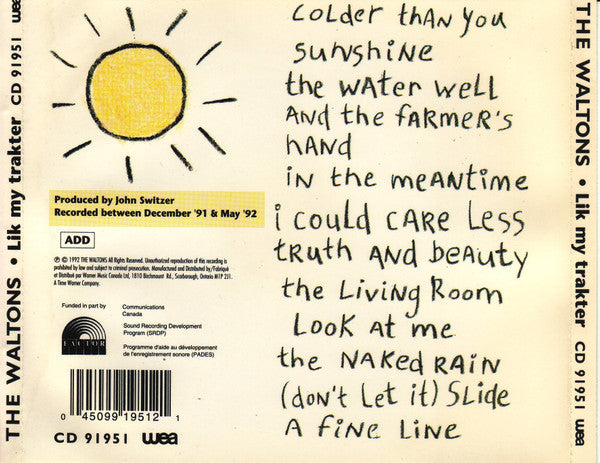 THE WALTONS • Lik my trakter CD 91951 wea
colder than you
sunshine
the water well
and the farmer's
hand
in the meantime
i could care less
truth and beauty
the living room
look at me
the naked rain
(don't let it) slide
a fine line
Produced by John Switzer
Recorded between December '91 & May '92
ADD
℗ © 1992 THE WALTONS All Rights Reserved. Unauthorized reproduction of this recording is
prohibited by law and subject to criminal prosecution. Manufactured and Distributed by/Fabriqué
et Distribué par Warner Music Canada Ltd, 1810 Birchmount Rd., Scarborough, Ontario M1P 2J1.
A Time Warner Company.
Funded in part by
FACTOR
Communications
Canada
Sound Recording Development
Program (SRDP)
Programme d'aide au développement
de l'enregistrement sonore (PADES)
0 45099 19512 1
CD 91951 wea
THE WALTONS • Lik my trakter CD 91951 wea